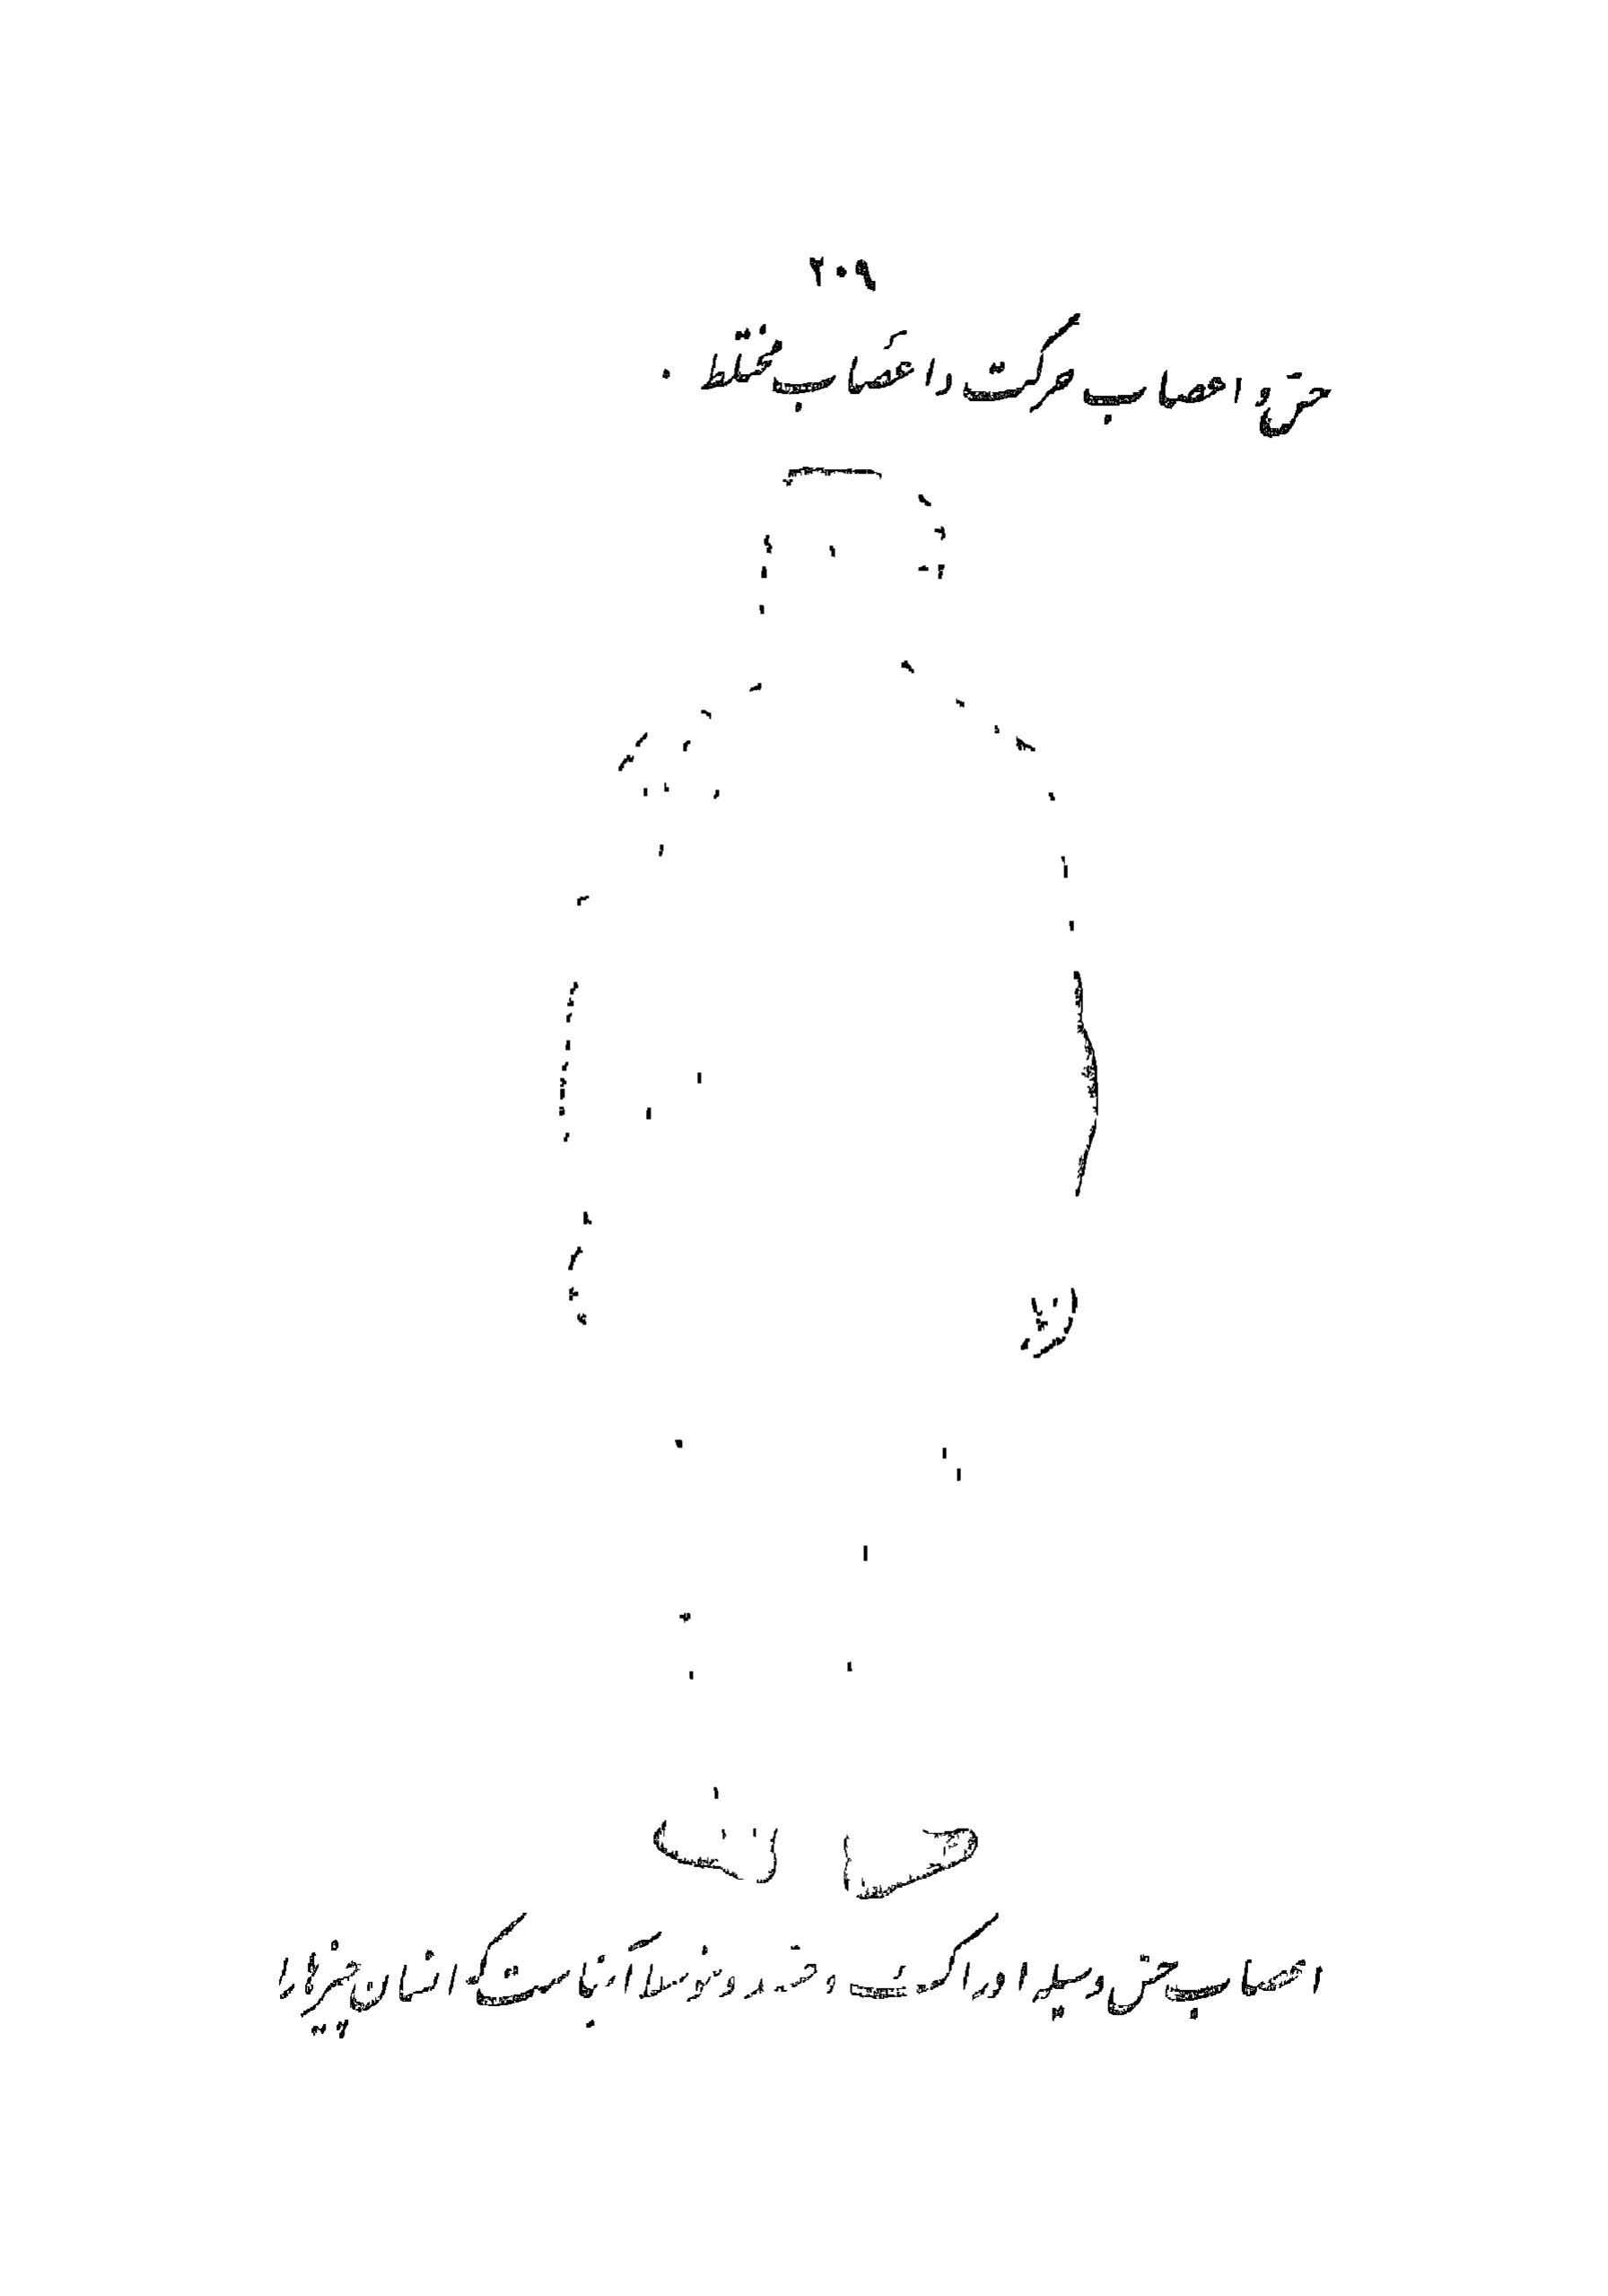 ۲۰۹
حس و اعصاب حرکت و اعصاب مختلط .
اعصاب حس وسیله ادراک و آنهاست که انسان چیزها را